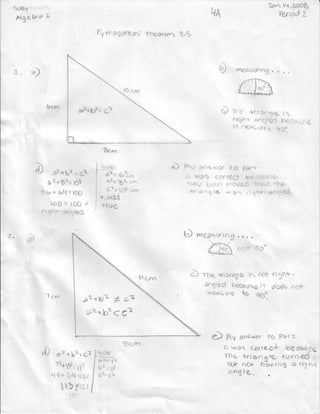 Jan. 14, 2008
Algebra 1
4A
Period 2
Pythagorean Theorem 3/5
1. a)
10 cm
6cm
a²+b²=c²
8cm
b) measuring....
c) The triangle is
right angled because
it measures 90°.
d) a²+b²=c²
6²+8²=10²
36+64=100
100=100 ✓
right angled
sub:
a²=6²cm
b²=8²cm
c²=10²cm
+, add
true
e) My answer to part
c was correct because
they both proved that the
triangle was right-angled.
2. a)
11cm
7cm
a²+b² ≠ c²
a²+b² < c²
8cm
b) measuring....
not 90°
c) The triangle is not right-
angled because it does not
measure to 90°.
d) a²+b²=c²
7²+8²=11²
49+64=121
113≠121
sub:
a²=7²
b²=8²
c²=11²
e) My answer to Part
c was correct because
the triangle turned
out not having a right
angle.